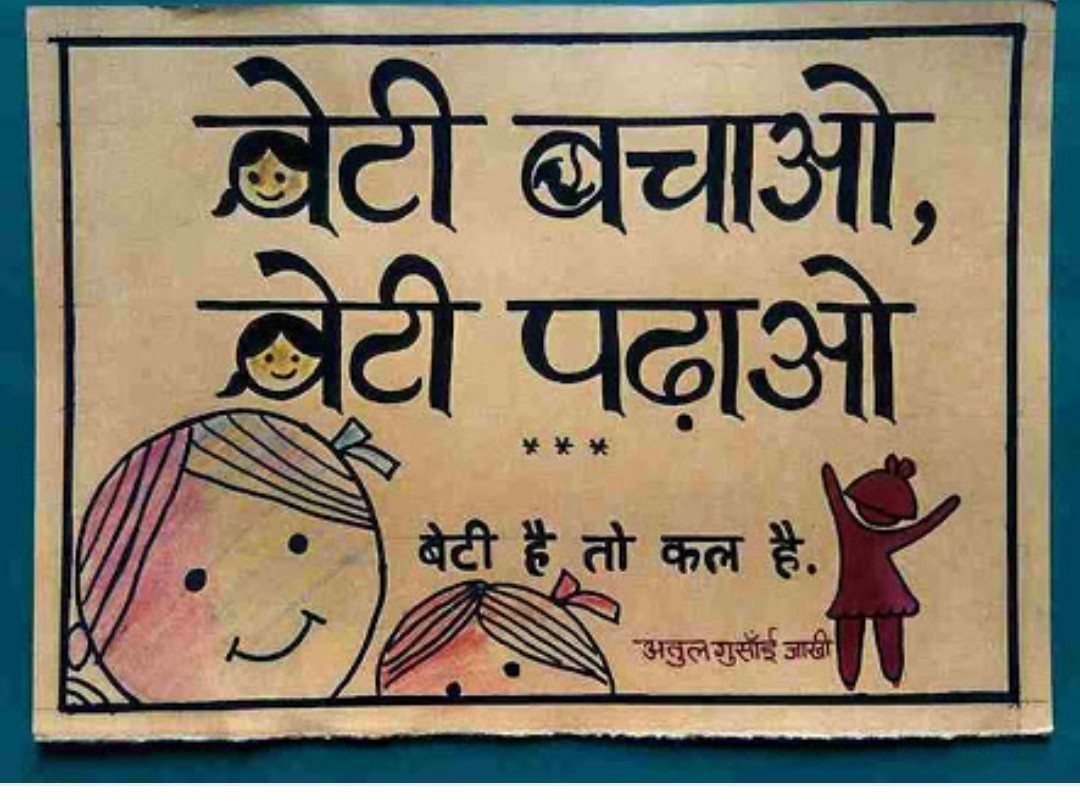 बेटी बचाओ,
बेटी पढ़ाओ
***
बेटी है तो कल है.
अतुल गुसाँई जाखी